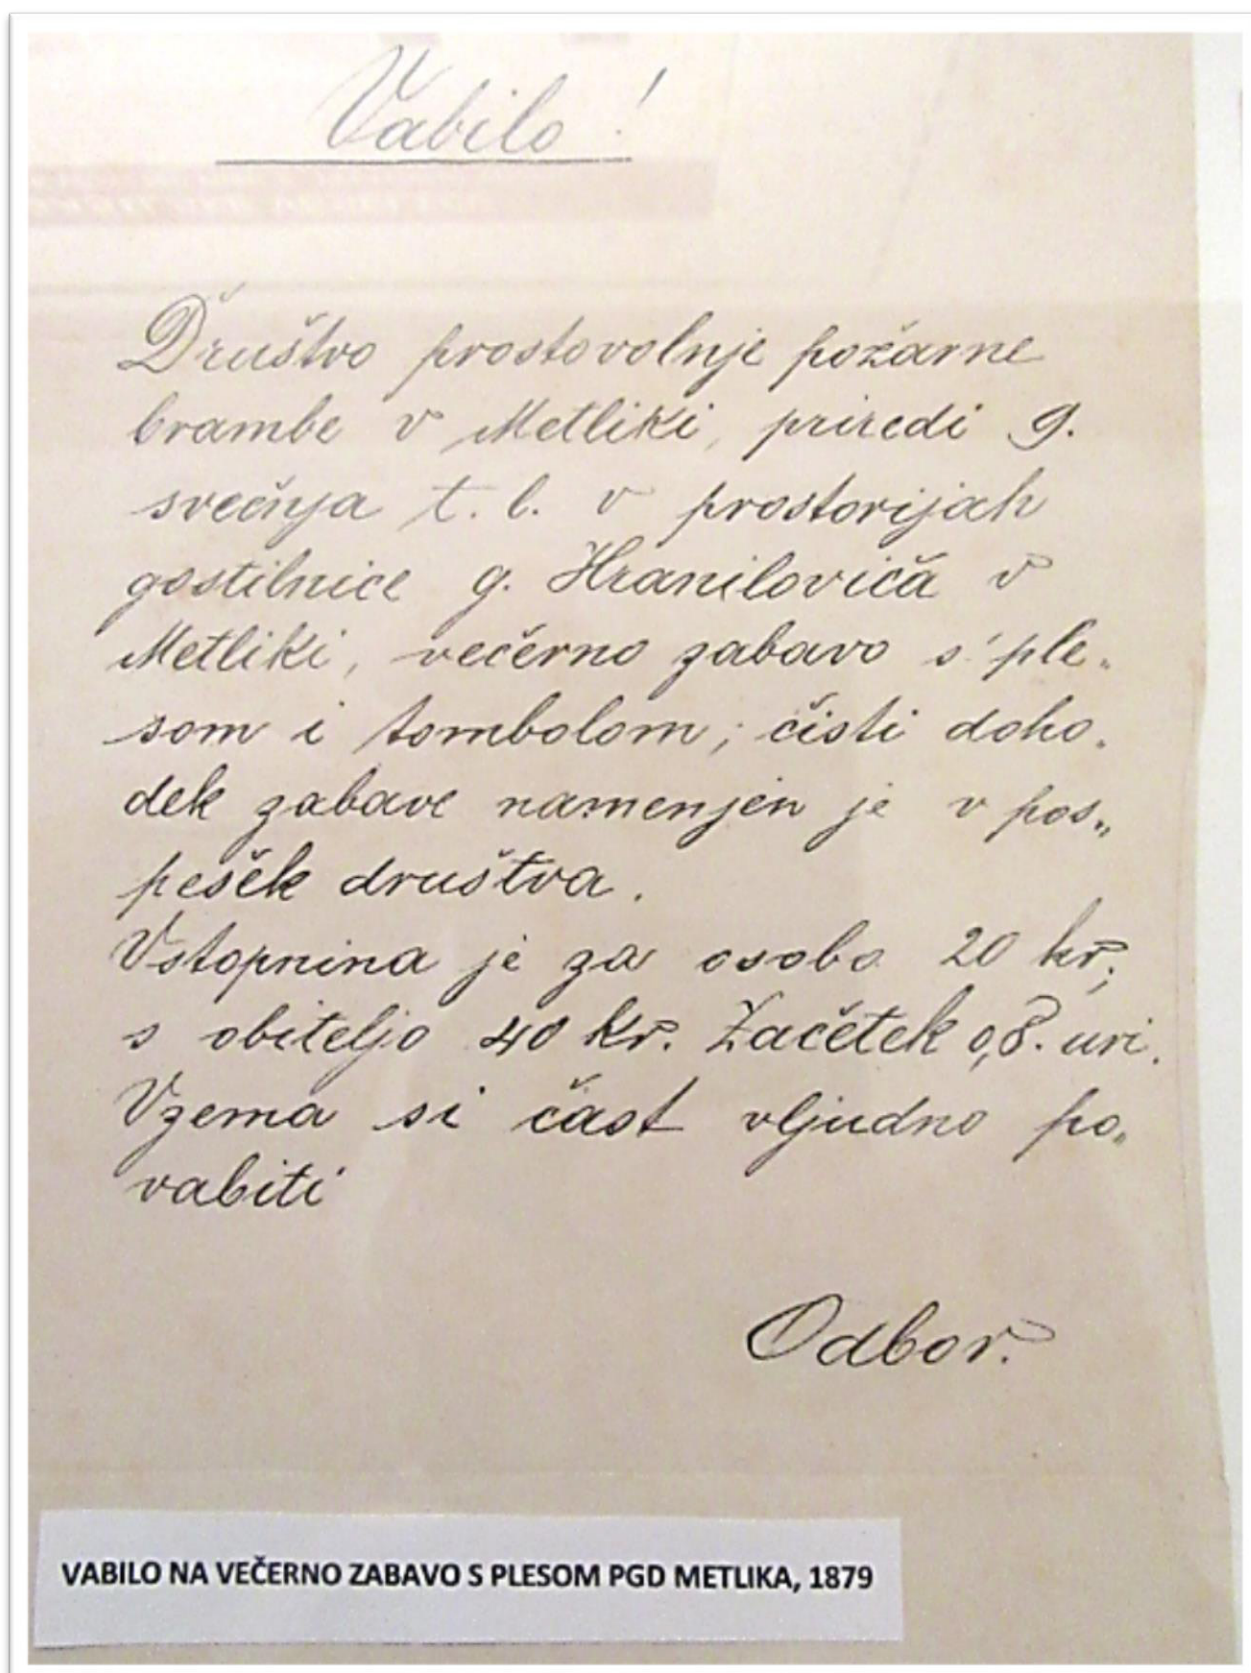 Vabilo!
Društvo prostovolnje požarne
brambe v Metliki, priredi 9.
svečnja t. l. v prostorijah
gostilnice g. Hraniloviča v
Metliki, večerno zabavo s' ple„
som i tombolom; čisti doho„
dek zabave namenjen je v pos„
pešek društva.
Vstopnina je za osobo 20 kr;
s obiteljo 40 kr. Začetek o, 8. uri.
Vzema si čast vljudno po„
vabiti
Odbor.
VABILO NA VEČERNO ZABAVO S PLESOM PGD METLIKA, 1879